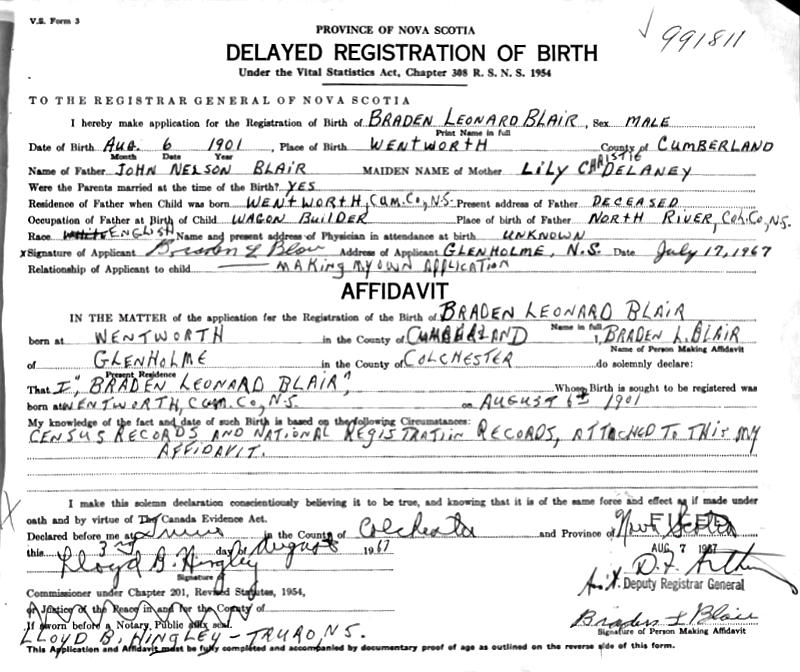 V.S. Form 3
991811
PROVINCE OF NOVA SCOTIA
DELAYED REGISTRATION OF BIRTH
Under the Vital Statistics Act, Chapter 308 R. S. N. S. 1954
TO THE REGISTRAR GENERAL OF NOVA SCOTIA
I hereby make application for the Registration of Birth of BRADEN LEONARD BLAIR, Sex MALE
Print Name in full
Date of Birth AUG. 6 1901, Place of Birth WENTWORTH County of CUMBERLAND
Month Date Year
Name of Father JOHN NELSON BLAIR MAIDEN NAME of Mother LILY CHRISTIE DELANEY
Were the Parents married at the time of the Birth? YES
Residence of Father when Child was born WENTWORTH, CUM. CO, N.S. Present address of Father DECEASED
Occupation of Father at Birth of Child WAGON BUILDER Place of birth of Father NORTH RIVER, COL. CO, N.S.
Race ENGLISH Name and present address of Physician in attendance at birth UNKNOWN
x Signature of Applicant Braden L Blair Address of Applicant GLENHOLME, N.S. Date July 17, 1967
Relationship of Applicant to child MAKING MY OWN APPLICATION
AFFIDAVIT
IN THE MATTER of the application for the Registration of the Birth of BRADEN LEONARD BLAIR
Name in full
born at WENTWORTH in the County of CUMBERLAND I, BRADEN L. BLAIR
Name of Person Making Affidavit
of GLENHOLME in the County of COLCHESTER do solemnly declare:
Present Residence
That I, "BRADEN LEONARD BLAIR", Whose Birth is sought to be registered was
born at WENTWORTH, CUM. CO, N.S. on AUGUST 6th 1901
My knowledge of the fact and date of such Birth is based on the following Circumstances:
CENSUS RECORDS AND NATIONAL REGISTRATION RECORDS, ATTACHED TO THIS MY
AFFIDAVIT.
I make this solemn declaration conscientiously believing it to be true, and knowing that it is of the same force and effect as if made under
oath and by virtue of The Canada Evidence Act.
Declared before me at Truro in the County of Colchester and Province of Nova Scotia
FILED
this 3rd day of August 1967
AUG 7 1967
Lloyd B. Hingley
Signature of
D. F. Arthur
Deputy Registrar General
Commissioner under Chapter 201, Revised Statutes, 1954,
or Justice of the Peace in and for the County of
If sworn before a Notary, Public affix seal.
Braden L Blair
Signature of Person Making Affidavit
LLOYD B. HINGLEY - TRURO, N.S.
This Application and Affidavit must be fully completed and accompanied by documentary proof of age as outlined on the reverse side of this form.